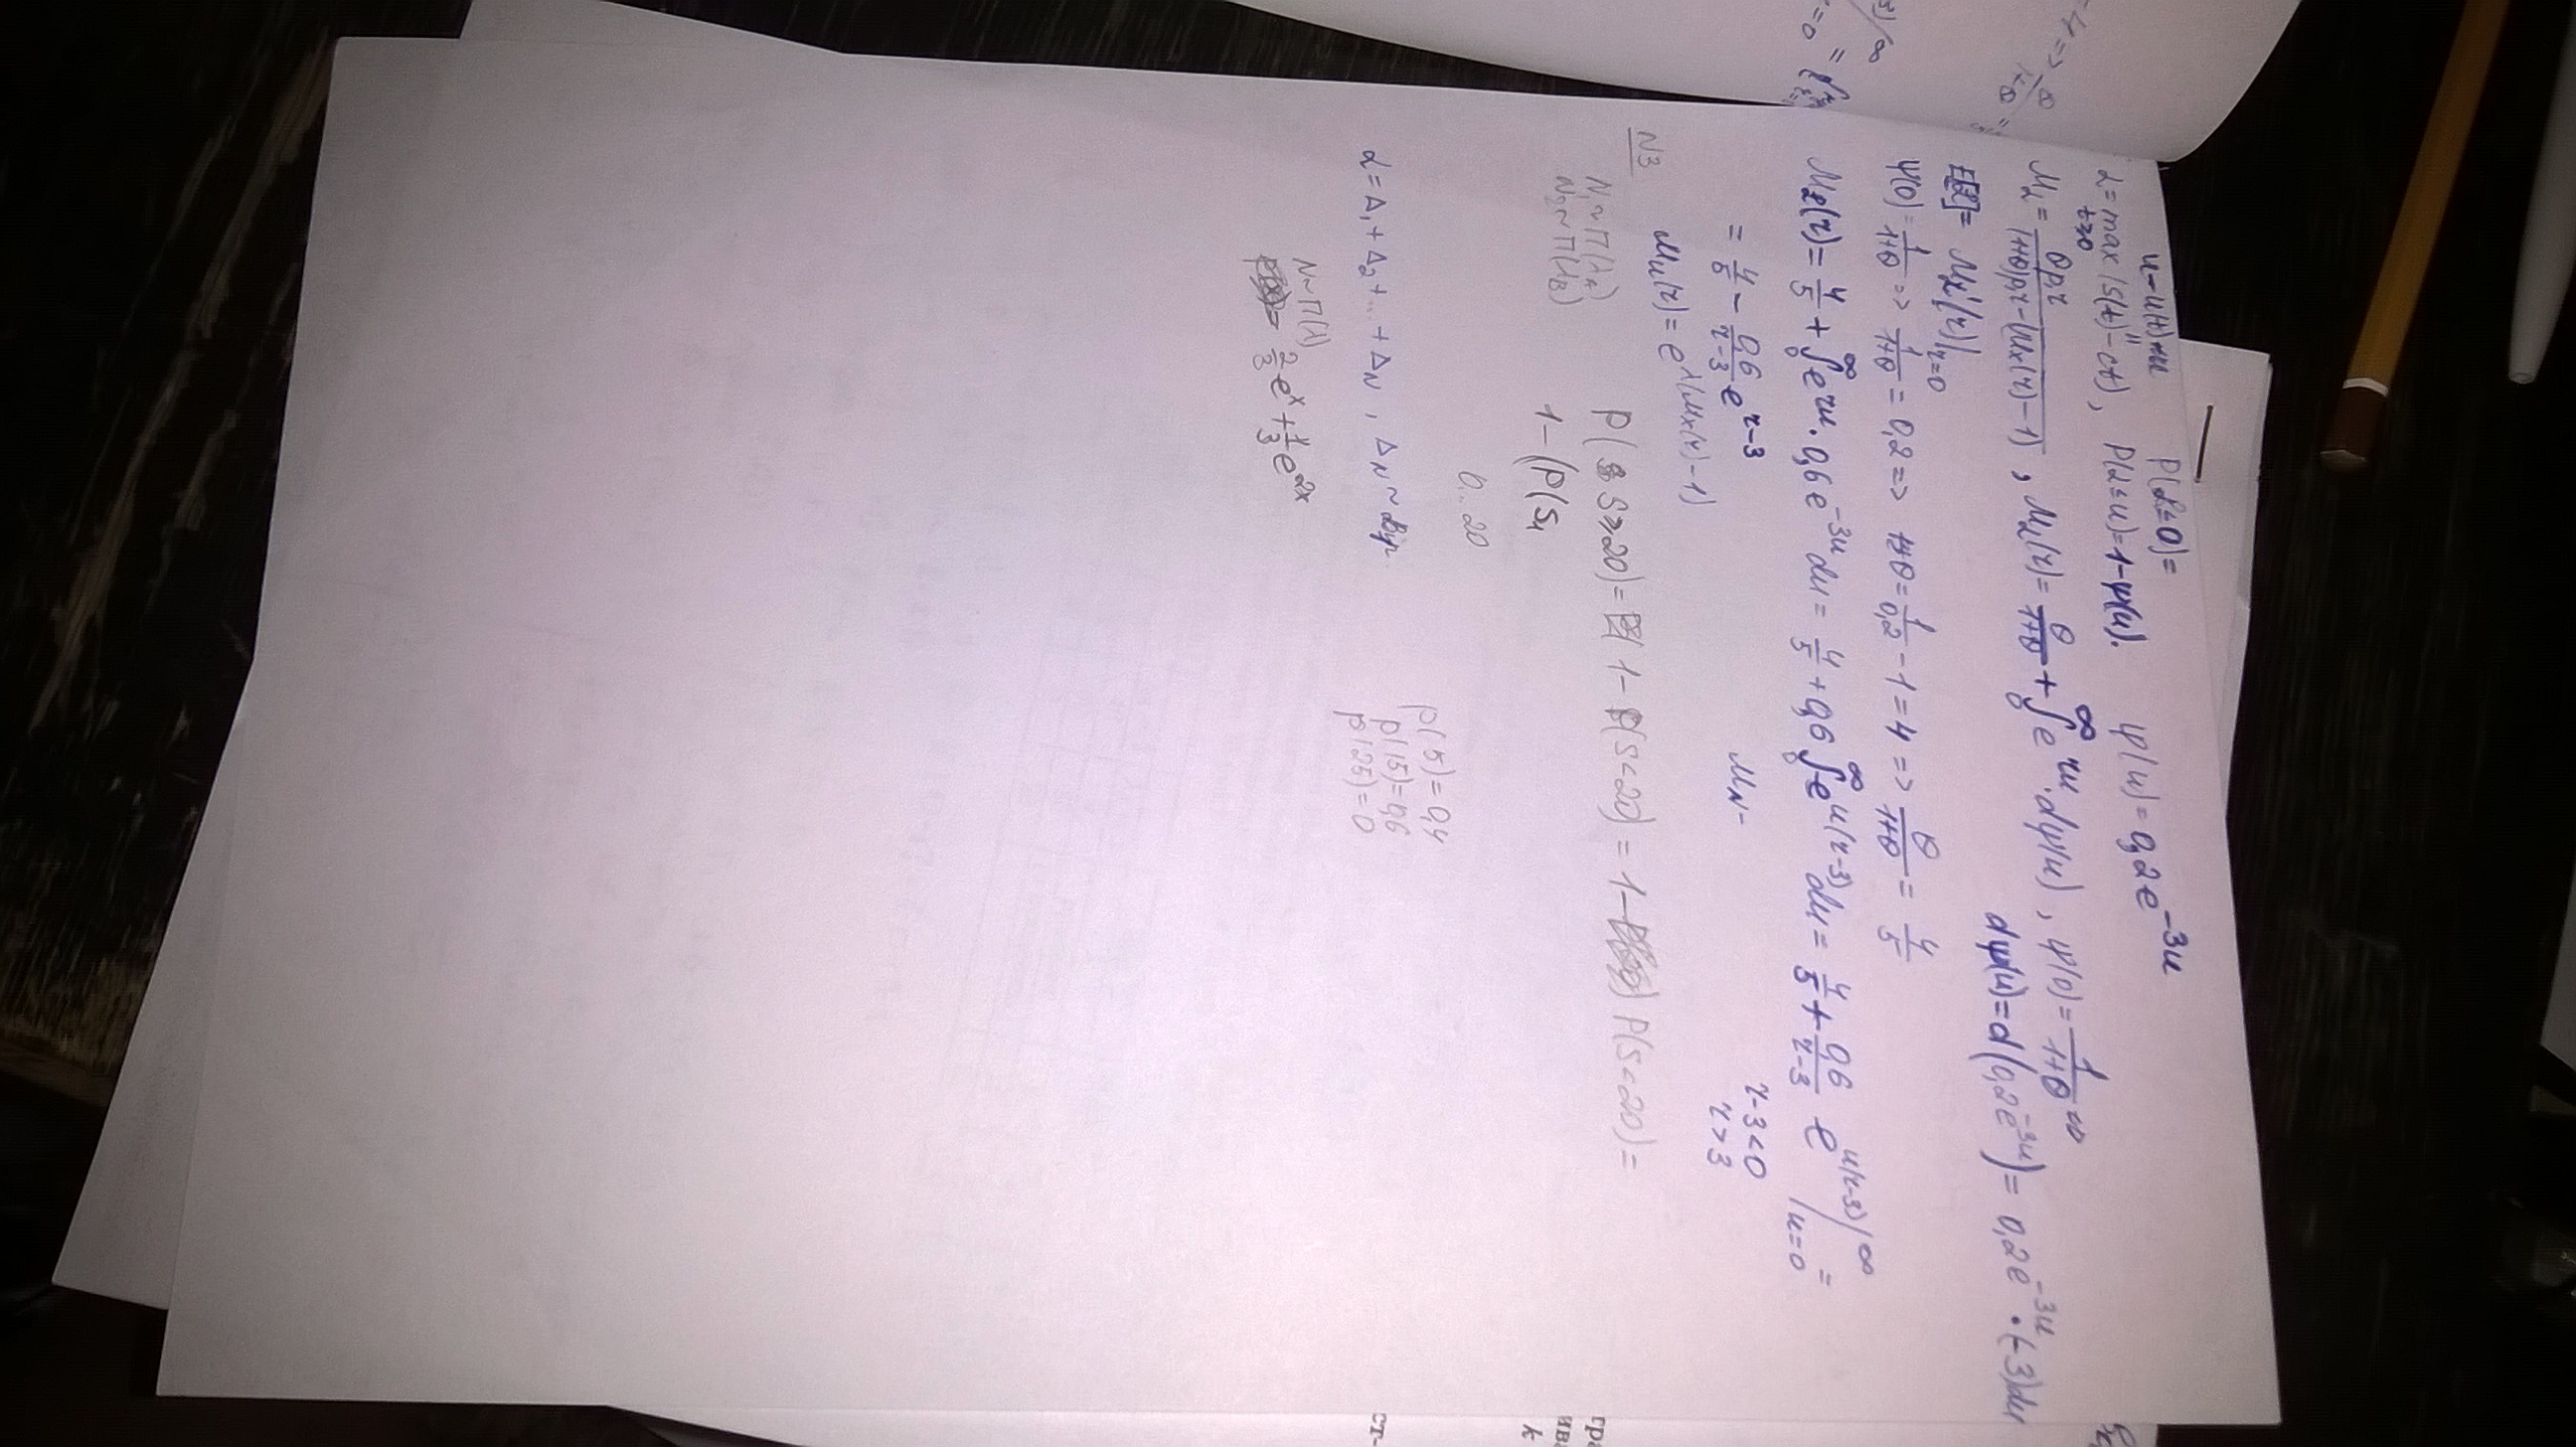 u-u(t)+u P(L≤0)= ψ(u)=0,2e^{-3u}
L=max_{t≥0}(S(t)-ct), P(L≤u)=1-ψ(u).
M_L=\frac{θp_1r}{1+(1+θ)p_1r-(M_x(r)-1)}, M_L(r)=\frac{θ}{1+θ}+∫_0^∞ e^{ru}·dψ(u), ψ(0)=\frac{1}{1+θ}⇒
E[L²]= M_L'(r)|_{r=0} dψ(u)=d(0,2e^{-3u})=0,2e^{-3u}·(-3)du
ψ(0)=\frac{1}{1+θ}=>\frac{1}{1+θ}=0,2=> 1+θ=\frac{1}{0,2}-1=4=>\frac{θ}{1+θ}=\frac{4}{5}
M_L(r)=\frac{4}{5}+∫_0^∞ e^{ru}·0,6e^{-3u}du=\frac{4}{5}+0,6∫_0^∞ e^{u(r-3)}du=\frac{4}{5}+\frac{0,6}{r-3}e^{u(r-3)}|_{u=0}^∞=
=\frac{4}{5}-\frac{0,6}{r-3}e^{r-3} M_N- r-3<0
r>3
M_u(r)=e^{λ(M_x(r)-1)}
N3
N_1~П(λ_A) P(S≥20)= 1-P(S<20)=1- P(S<20)=
N_2~П(λ_B)
1-(P(S_1
0..20
P(5)=0,4
P(15)=0,6
P(25)=0
L=Δ_1+Δ_2+...+Δ_N, Δ_N~
N~П(λ)
\frac{2}{3}e^x+\frac{1}{3}e^{2x}